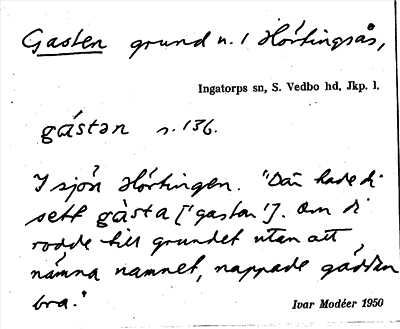 Gasten grund n. i Hörtingsås,
Ingatorps sn, S. Vedbo hd, Jkp. l.
gástən s. 136.
I sjön Hörtingen. "Där hade di
sett gàsta ['gastar']. Om di
rodde till grundet utan att
nämna namnet, nappade gäddan
bra."
Ivar Modéer 1950